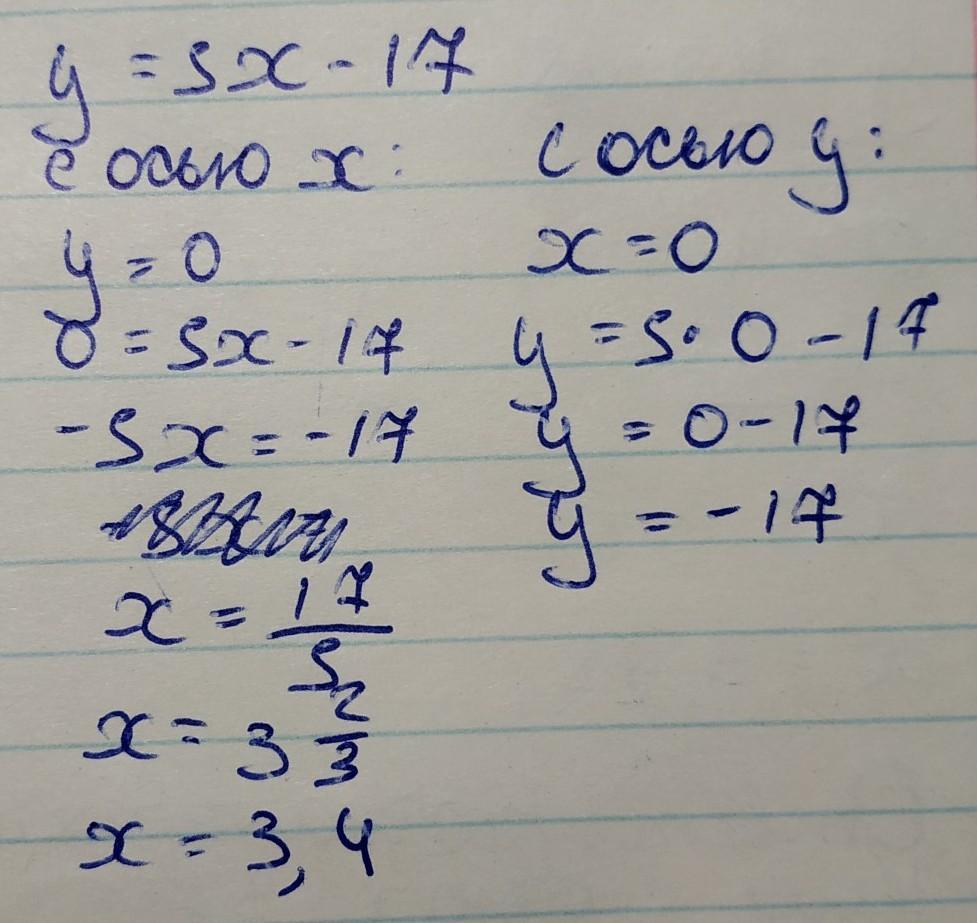 y = 5x - 17
с осью x:
y = 0
0 = 5x - 17
-5x = -17
x = 17/5
x = 3 2/3
x = 3,4
с осью y:
x = 0
y = 5 · 0 - 17
y = 0 - 17
y = -17